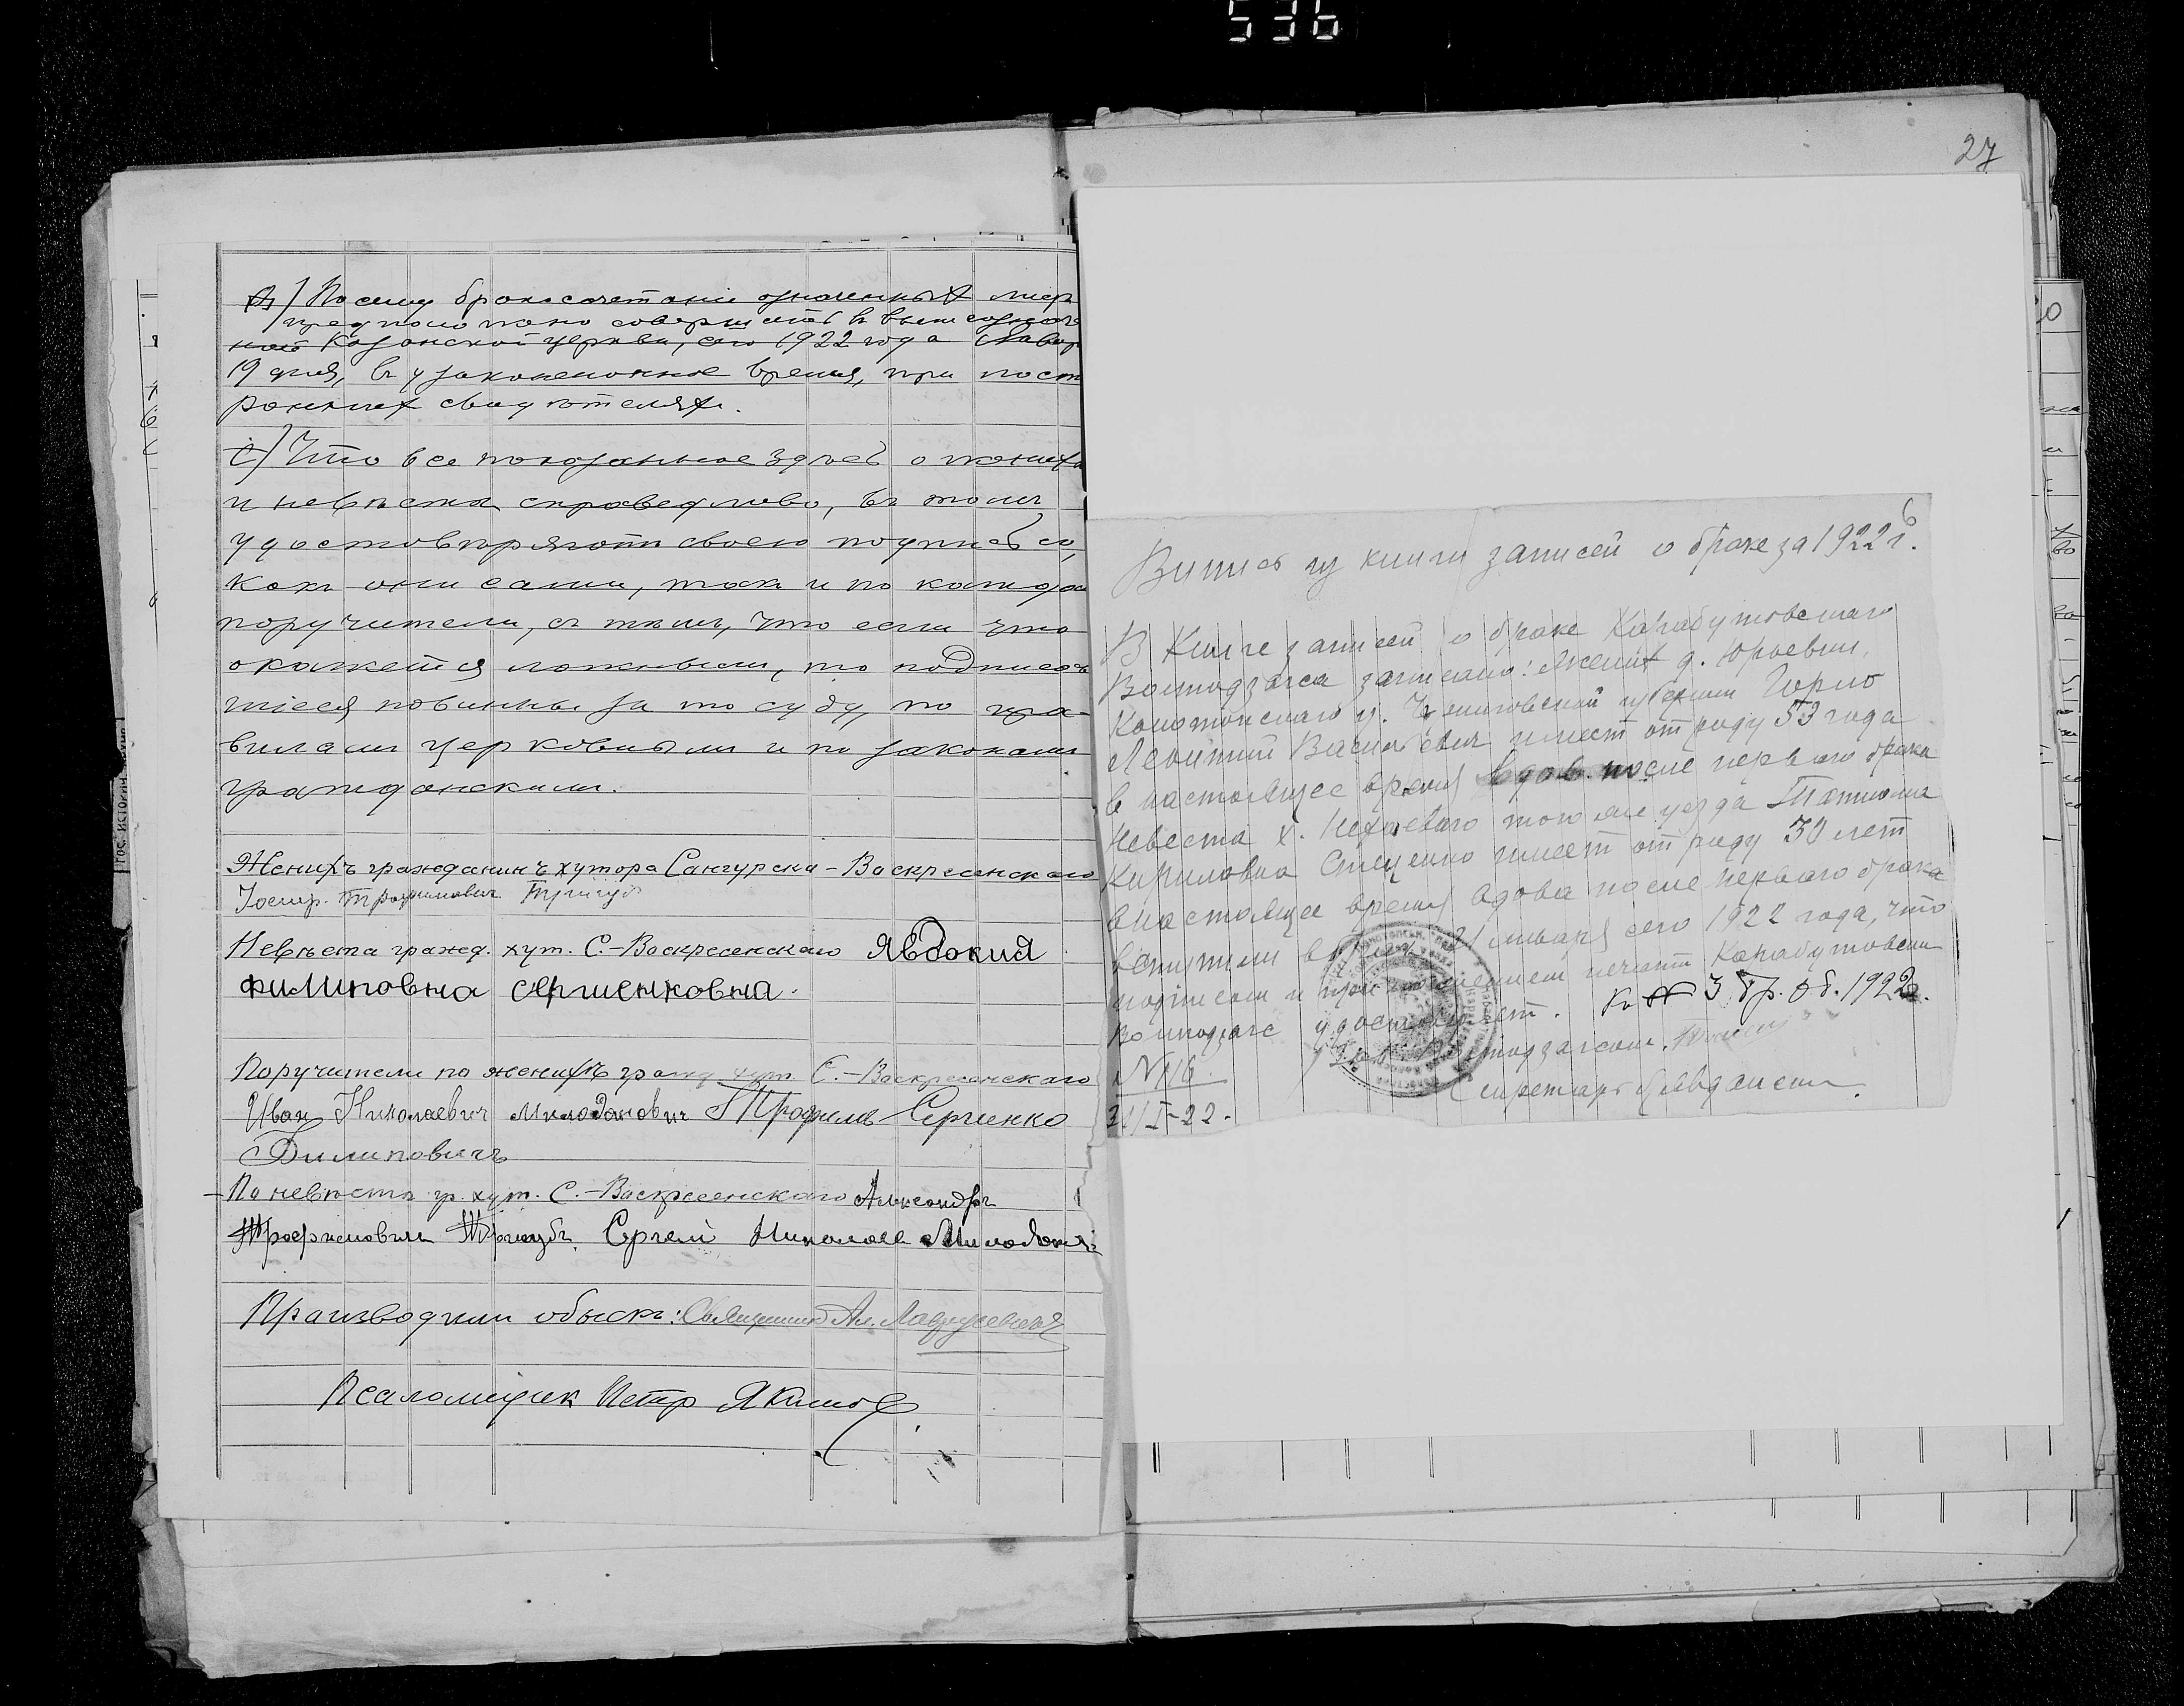 536
27
Посему бракосочетаніе означенныхъ лицъ
предположено совершить въ вышеозначен
ной Казанской церкви, сего 1922 года Январ
19 дня, въ узаконенное время, при посто
роннихъ свидѣтеляхъ.
Что все показанное здѣсь о женихѣ
и невѣстѣ справедливо, въ томъ
удостовѣряютъ своею подписью,
какъ они сами, такъ и по каждом
поручители, съ тѣмъ, что если что
окажется ложнымъ, то подписав
шіеся повинны за то суду, по пра-
виламъ церковнымъ и по законамъ
гражданскимъ.
Женихъ гражданинъ хутора Сангурска-Воскресенскаго
Іосиф. Трофимович Тригуб
Невѣста гражд. хут. С.-Воскресенскаго Явдокия
филиповна сергиенковна.
Поручители по женихѣ гражд хут. С.-Воскресенскаго
Иван Николаевич Милодановичъ Трофимъ Сергиенко
Филиповичъ
По невѣстѣ гр. хут. С.-Воскресенскаго Александръ
Трофимовичъ Тригубъ. Сергей Николаев Милодан
Производили обыскъ: Священникъ Ал.
Псаломщик Петр Якимов
6
Випись из книги записей о браке за 1922 г.
В Книге записей о браке Карабутовскаго
Волподзагса записано: Жених д. Юрьевки,
Конотопскаго у. Черниговской губернии Горло
Леонтий Васильевич имеет от роду 53 года
в настоящее время вдов. после первого брака
Невеста х. Нехаевкаго того же уезда Татиана
Кириловна Стеценко имеет от роду 30 лет
в настоящее время вдова после первого брака
вступили в брак 31 января сего 1922 года, что
подписом и приложением печати Карабутовски
Волподзагс удостоверяет. К № 3 бр. об. 1922 г.
Зав. Волподзагсом.
№ 16. Секретарь
31/I-22.